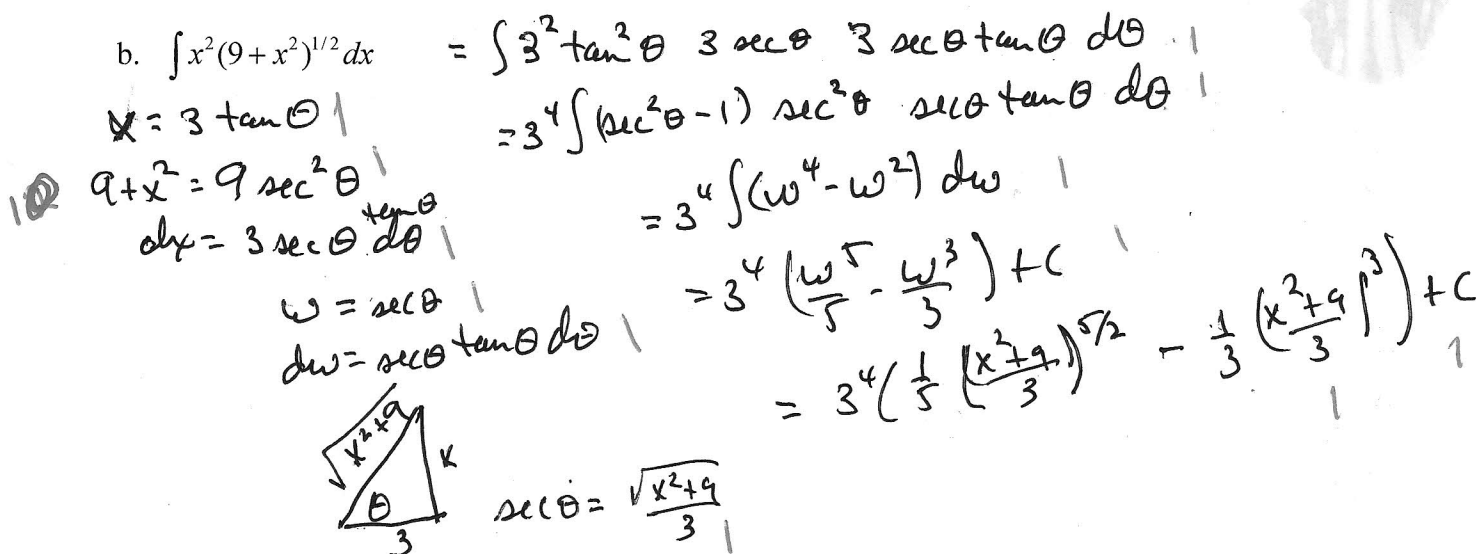 b. ∫x²(9+x²)^{1/2} dx = ∫3² tan²θ 3 secθ 3 secθ tanθ dθ 1
x = 3 tanθ 1
= 3⁴∫(sec²θ-1) sec²θ secθ tanθ dθ 1
10 9+x² = 9 sec²θ 1
= 3⁴∫(w⁴-w²) dw 1
dx = 3 secθ tanθ dθ 1
= 3⁴(w⁵/5 - w³/3) + C 1
w = secθ 1
dw = secθ tanθ dθ 1
= 3⁴(1/5 ((x²+9)/3)^{5/2} - 1/3 ((x²+9)/3)³) + C 1 1
√x²+9
x
θ
3
secθ = √(x²+9)/3 1